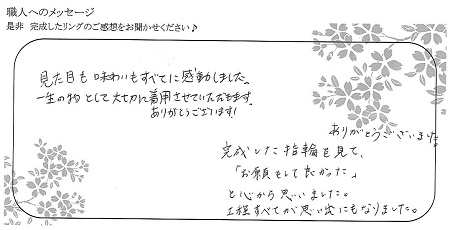 職人へのメッセージ
是非 完成したリングのご感想をお聞かせください♪
見た目も味わいもすべてに感動しました。
一生の物として大切に着用させていただきます。
ありがとうございます!
ありがとうございました。
完成した指輪を見て、
「お願いして良かった」
と心から思いました。
工程すべてが思い出にもなりました。